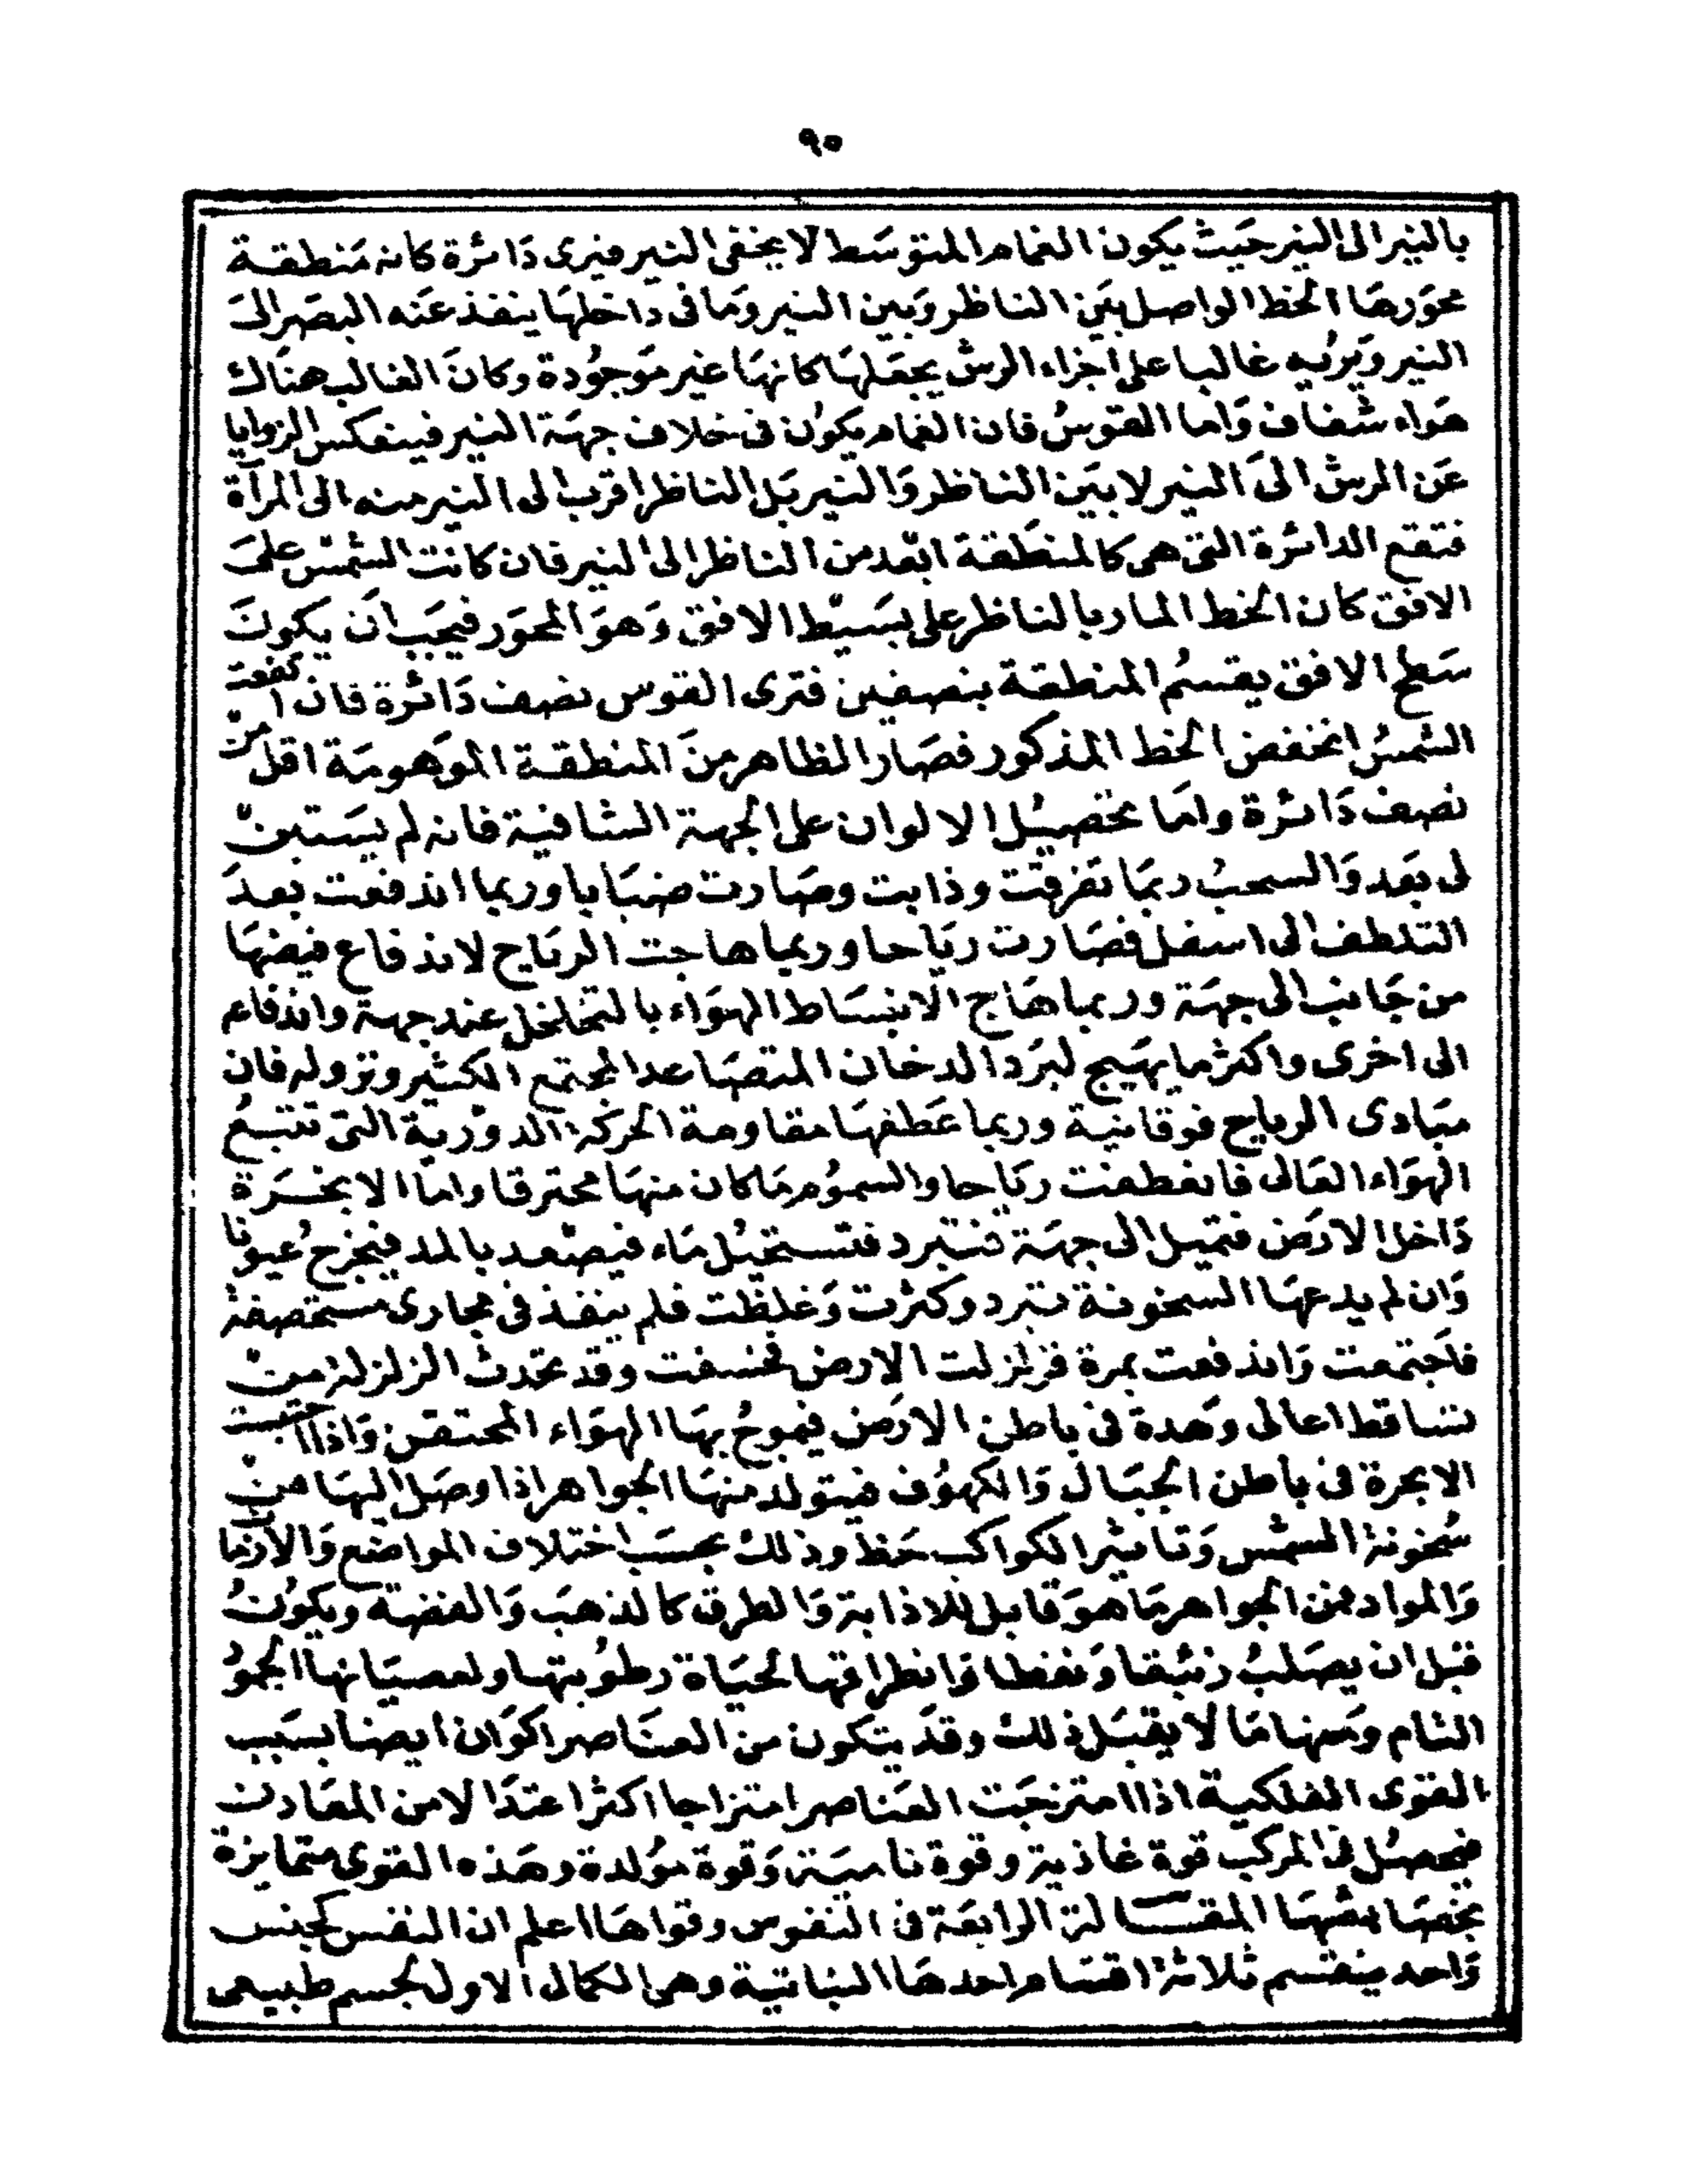 ٩٥
بالنير الى النير حيث يكون الغمام المتوسط لا يخفى النير فيرى دائرة كانه منطقة
محورها الخط الواصل بين الناظر وبين النير وما فى داخلها ينفذ عنه البصر الى
النير ويريه غالبا على اجزاء الرش يجعلها كانها غير موجودة وكان الغالب هناك
هواء شفاف واما القوس فان الغمام يكون فى خلاف جهة النير فينعكس الزوايا
عن الرش الى النير لا بين الناظر والنير بل الناظر اقرب الى النير منه الى المرآة
فتقع الدائرة التى هى كالمنطقة ابعد من الناظر الى النير فان كانت الشمس على
الافق كان الخط المار بالناظر على بسيط الافق وهو المحور فيجب ان يكون
سطح الافق يقسم المنطقة بنصفين فترى القوس نصف دائرة فان ارتفعت
الشمس انخفض الخط المذكور فصار الظاهر من المنطقة الموهومة اقل من
نصف دائرة واما تحصيل الالوان على الجهة الشافية فانه لم يستبن
لى بعد والسحب ربما تفرقت وذابت وصارت ضبابا وربما اندفعت بعد
التلطف الى اسفل فصارت رياحا وربما هاجت الرياح لاندفاع فيضها
من جانب الى جهة وربما هاج الانبساط الهواء بالتخلخل عند جهة واندفاع
الى اخرى واكثر ما يهيج لبرد الدخان المتصاعد المجتمع الكثير ونزوله فان
مبادى الرياح فوقانية وربما عطفها مقاومة الحركة الدورية التى تتبع
الهواء العالى فانعطفت رياحا والسموم ما كان منها محترقا واما الابخرة
داخل الارض فتميل الى جهة تتبرد فتستحيل ماء فيصعد بالمد فيخرج عيونا
وان لم يدعها السخونة تتبرد وكثرت وغلظت فلم ينفذ فى مجارى مستحصفة
فاجتمعت واندفعت بمرة فزلزلت الارض فخسفت وقد تحدث الزلزلة من
تساقط اعالى وهدة فى باطن الارض فيموج بها الهواء المحتقن واذا احتبست
الابخرة فى باطن الجبال والكهوف فيتولد منها الجواهر اذا وصل اليها من
سخونة الشمس وتاثير الكواكب حظ وذلك بحسب اختلاف المواضع والازمان
والمواد فمن الجواهر ما هو قابل للاذابة والطرق كالذهب والفضة ويكون
قبل ان يصلب زئبقا ونفطا وانطراقها لحياة رطوبتها ولعصيانها الجمود
التام ومنها ما لا يقبل ذلك وقد يتكون من العناصر اكوان ايضا بسبب
القوى الفلكية اذا امتزجت العناصر امتزاجا اكثر اعتدالا من المعادن
فيحصل فى المركب قوة غاذية وقوة نامية وقوة مولدة وهذه القوى متمايزة
بخصائصها المقالة الرابعة فى النفوس وقواها اعلم ان النفس كجنس
واحد ينقسم ثلاثة اقسام احدها النباتية وهى الكمال الاول لجسم طبيعى